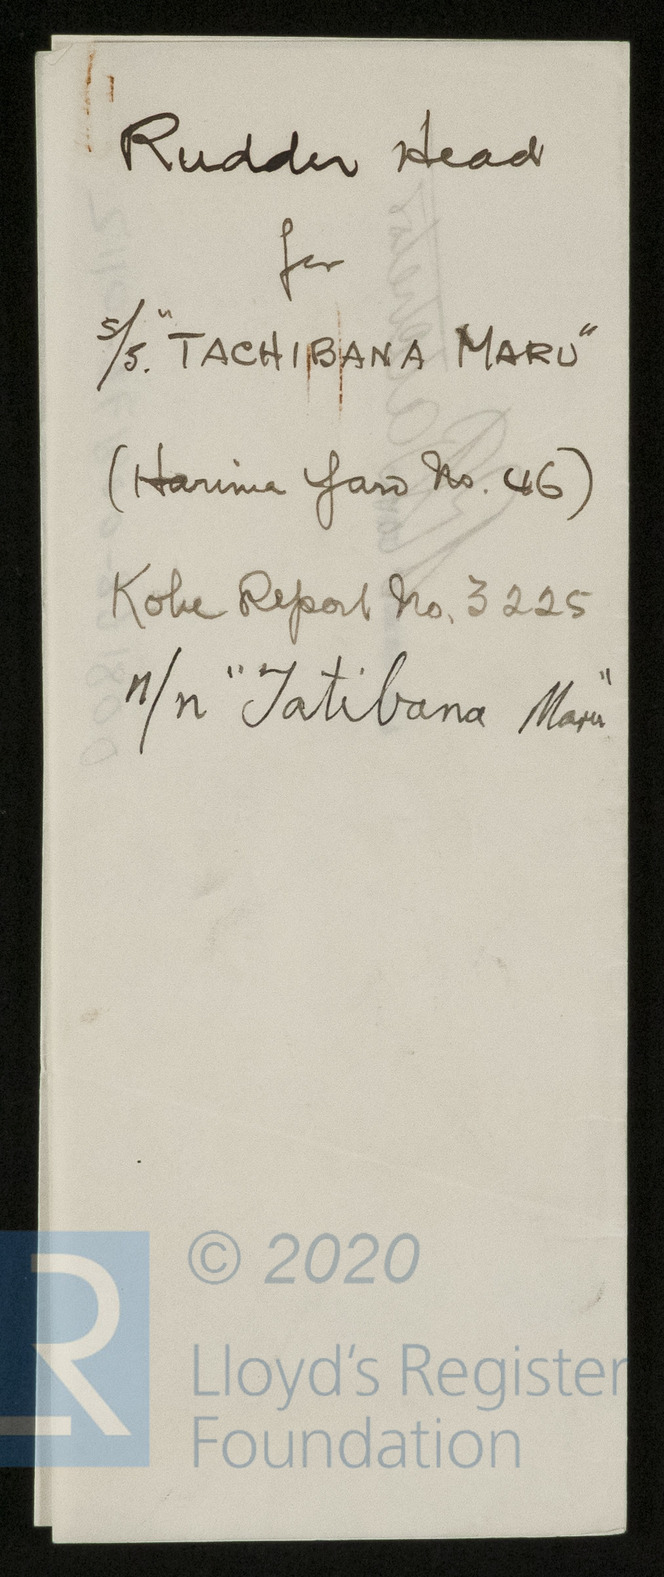 Rudder Head
for
S/S. "TACHIBANA MARU"
(Harima Yard No. 46)
Kobe Report No. 3225
n/n "Tatibana Maru"
© 2020
Lloyd's Register
Foundation